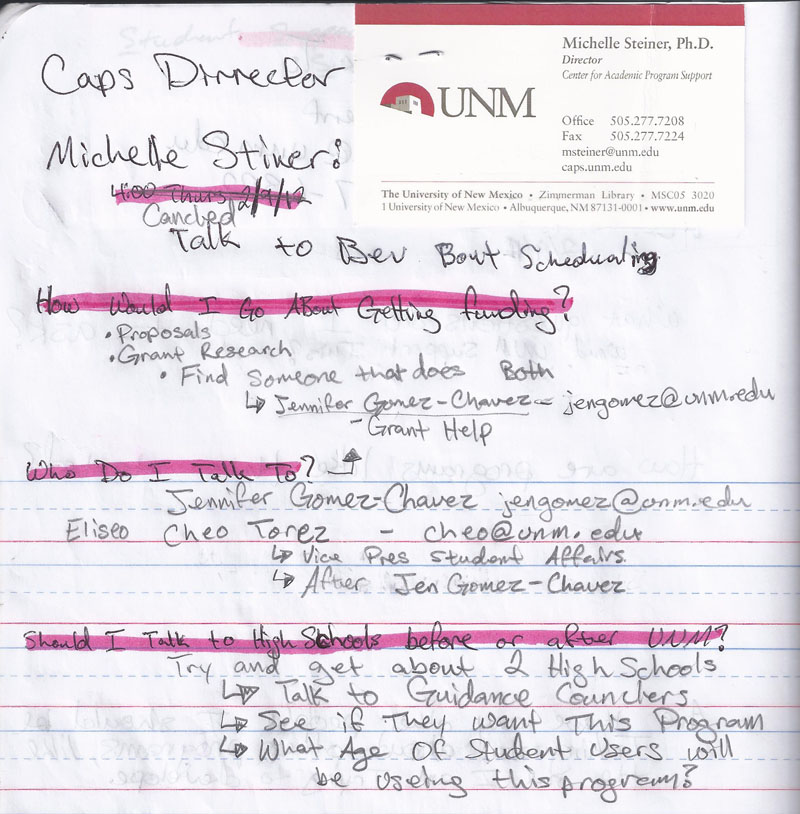 Caps Dirrector
Michelle Stiner:
4:00 Thurs 2/9/12
Cancled
Talk to Bev Bout Schedualing
Michelle Steiner, Ph.D.
Director
Center for Academic Program Support
UNM
Office 505.277.7208
Fax 505.277.7224
msteiner@unm.edu
caps.unm.edu
The University of New Mexico • Zimmerman Library • MSC05 3020
1 University of New Mexico • Albuquerque, NM 87131-0001 • www.unm.edu
How Would I Go About Getting funding?
• Proposals
• Grant Research
• Find Someone that does Both
↳ Jennifer Gomez-Chavez – jengomez@unm.edu
– Grant Help
Who Do I Talk To?
Jennifer Gomez-Chavez jengomez@unm.edu
Eliseo Cheo Torez – cheo@unm.edu
↳ Vice Pres Student Affairs
↳ After Jen Gomez-Chavez
Should I Talk to High Schools before or after UNM?
Try and get about 2 High Schools
↳ Talk to Guidance Councelers
↳ See if They want This Program
↳ What Age Of Student Users will
be useing this program?